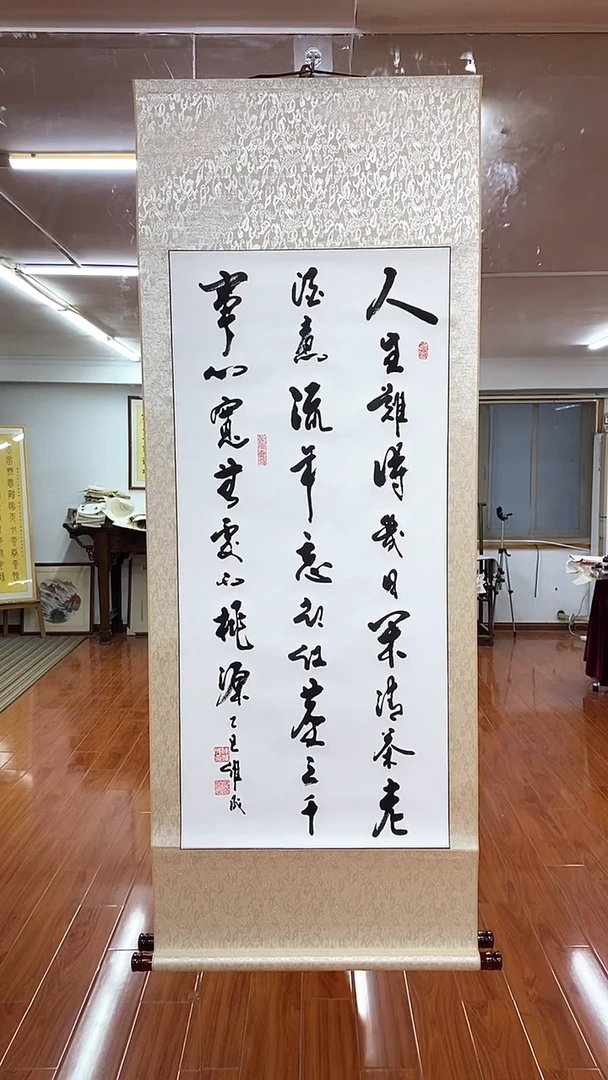 人生難得幾日閑清茶老
酒意流年忘却紅塵三千
事心寬無處不桃源
乙巳維